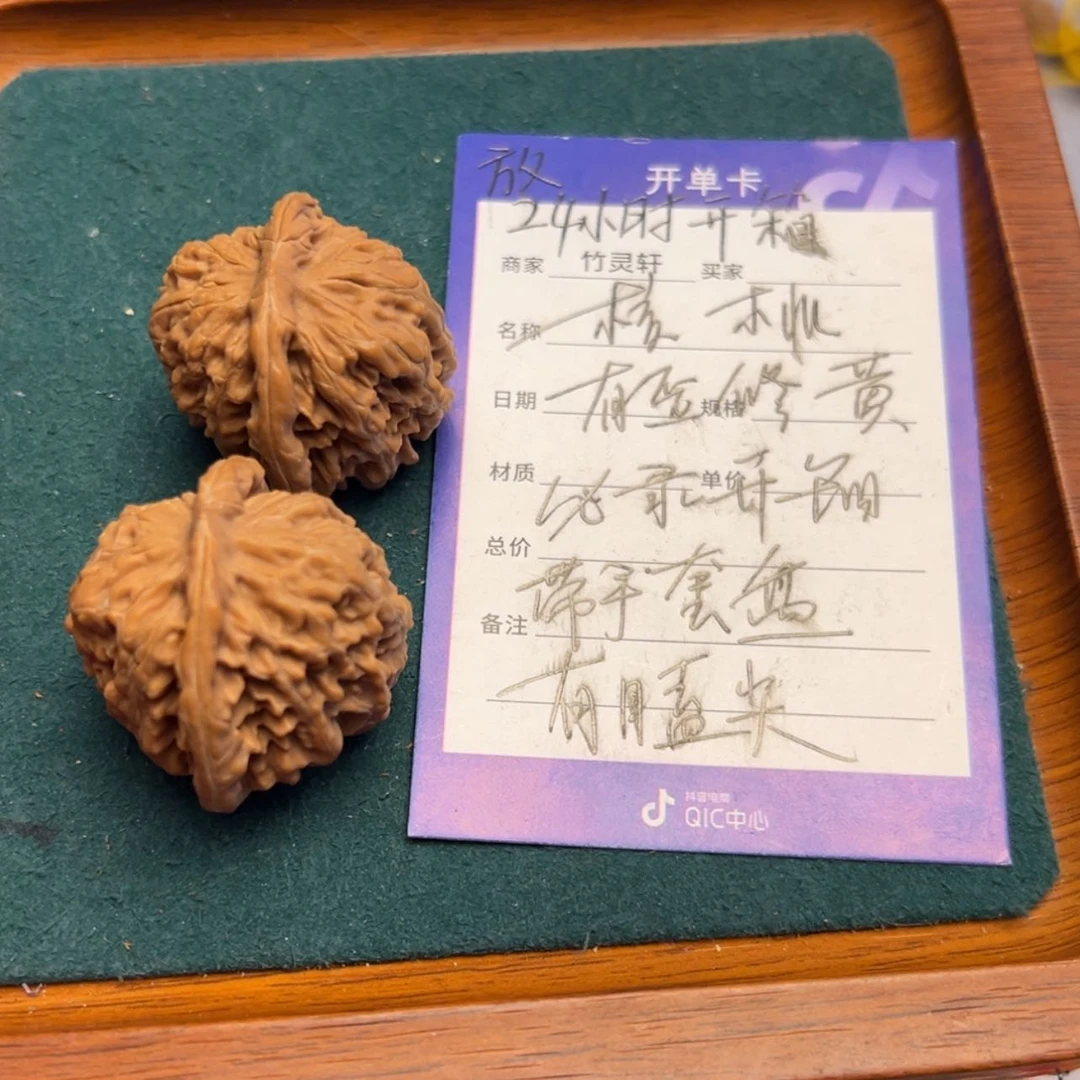 开单卡
放
24小时开箱
商家 竹灵轩 买家
名称 核桃
日期 有 规格 修 黄
材质 必录开箱 单价
总价
带手套盘
备注
有 尖
抖音电商
QIC中心